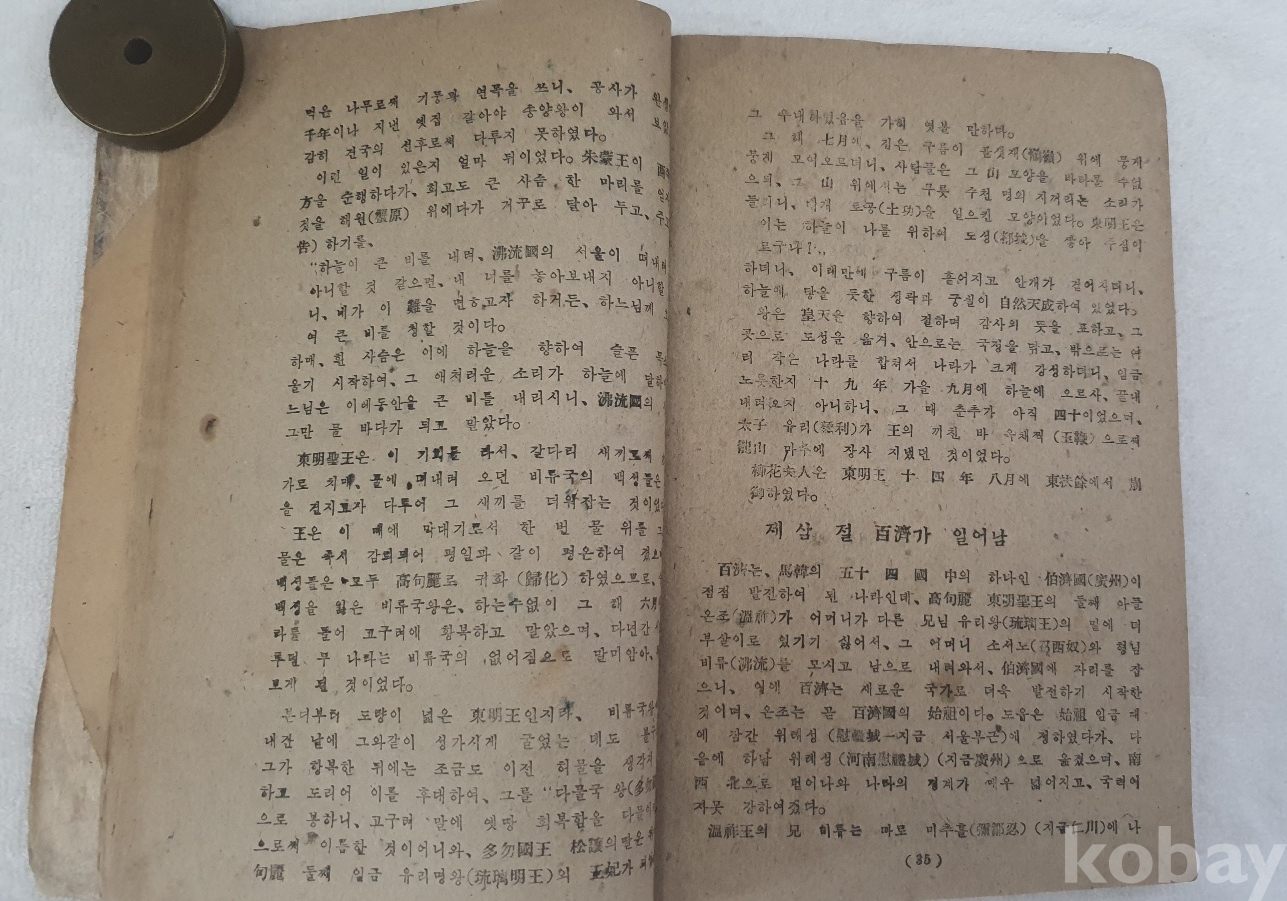 먹은 나무로써 기둥과 연목을 쓰니, 궁사가 완
千年이나 지낸 옛집 같아야 송양왕이 와서 보았
감히 건국의 선후로써 다투지 못하였다。
이런 일이 있은지 얼마 뒤이었다。朱蒙王이 西
方을 순행하다가, 회고도 큰 사슴 한 마리를
짓을 해원(蟹原) 위에다가 거꾸로 달아 두고, 주
告) 하기를、
“하늘이 큰 비를 내려、沸流國의 서울이 떠내
아니할 것 같으면、내 너를 놓아보내지 아니할
니、네가 이 難을 면하고자 하거든、하느님께
여 큰 비를 청할 것이다。
하매、흰 사슴은 이에 하늘을 향하여 슬픈
울기 시작하여、그 애처러운 소리가 하늘에
느님은 이레동안을 큰 비를 내리시니、沸流國의
그만 물 바다가 되고 말았다。
東明聖王은 이 기회를 타서、갈다리 새끼로써
가로 치매、물에 떠내려 오던 비류국의 백성들은
을 건지고자 다투어 그 새끼를 더위잡는 것이었
王은 이 때에 막대기로서 한 번 물 위를
물은 즉시 감퇴되어 평일과 같이 평온하여 졌으
백성들은 모두 高句麗로 귀화(歸化)하였으므로、
백성을 잃은 비류국왕은、하는수없이 그 해 六月
라를 들어 고구려에 항복하고 말았으며、다년간
투던 두 나라는 비류국의 없어짐으로 말미암아、
보게 된 것이었다。
본디부터 도량이 넓은 東明王인지라、비류국
내간 날에 그와같이 성가시게 굴었는 데도
그가 항복한 뒤에는 조금도 이전 허물을 생각
하고 도리어 이를 후대하여、그를 “다물국 왕(多
으로 봉하니、고구려 말에 옛땅 회복함을 다물
으로써 이름한 것이어니와、多勿國王 松讓의 딸은
句麗 둘째 임금 유리명왕(琉璃明王)의 王妃가 되
그 우대하였음을 가히 엿볼 만하다。
그 해 七月에、검은 구름이 골짓재(鶻嶺) 위에 뭉게
뭉게 모이오르더니、사람들은 그 山 모양을 바라볼 수없
으되、그 山 위에서는 무릇 수천 명의 지꺼리는 소리가
들리니、대개 토공(土功)을 일으킨 모양이었다。東明王은
이는 하늘이 나를 위하여 도성(都城)을 쌓아 주심이
로구나！」
하더니、이레만에 구름이 흩어지고 안개가 걷어지더니、
하늘에 닿을 듯한 성곽과 궁실이 自然天成하여 있었다。
왕은 皇天은 향하여 절하며 감사의 뜻을 표하고、그
곳으로 도성을 옮겨、안으로는 국정을 닦고、밖으로는 여
러 작은 나라를 합쳐서 나라가 크게 강성하더니、임금
노릇한지 十九年 가을 九月에 하늘에 오르사、끝내
내려오지 아니하니、그 때 춘추가 아직 四十이었으며、
太子 유리(類利)가 王의 끼친 바 옥채찍(玉鞭)으로써
龍山 마루에 장사 지냈던 것이었다。
柳花夫人은 東明王 十四年 八月에 東扶餘에서 崩
御하였다。
제삼절 百濟가 일어남
百濟는、馬韓의 五十四國 中의 하나인 伯濟國(廣州)이
점점 발전하여 된 나라인데、高句麗 東明聖王의 둘째 아들
온조(溫祚)가 어머니가 다른 兄님 유리왕(琉璃王)의 밑에 더
부살이로 있기가 싫어서、그 어머니 소서노(召西奴)와 형님
비류(沸流)를 모시고 남으로 내려와서、伯濟國에 자리를 잡
으니、일에 百濟는 새로운 국가로 더욱 발전하기 시작한
것이며、온조는 곧 百濟國의 始祖이다。도읍은 始祖 임금 때
에 잠간 위례성(慰禮城—지금 서울부근)에 정하였다가、다
음에 하남 위례성(河南慰禮城)(지금廣州)으로 옮겼으며、南
西 北으로 뻗어나와 나라의 경계가 매우 넓어지고、국력이
자못 강하여졌다。
溫祚王의 兄 비류는 따로 미추홀(彌鄒忽)(지금仁川)에 나
(35)
kobay